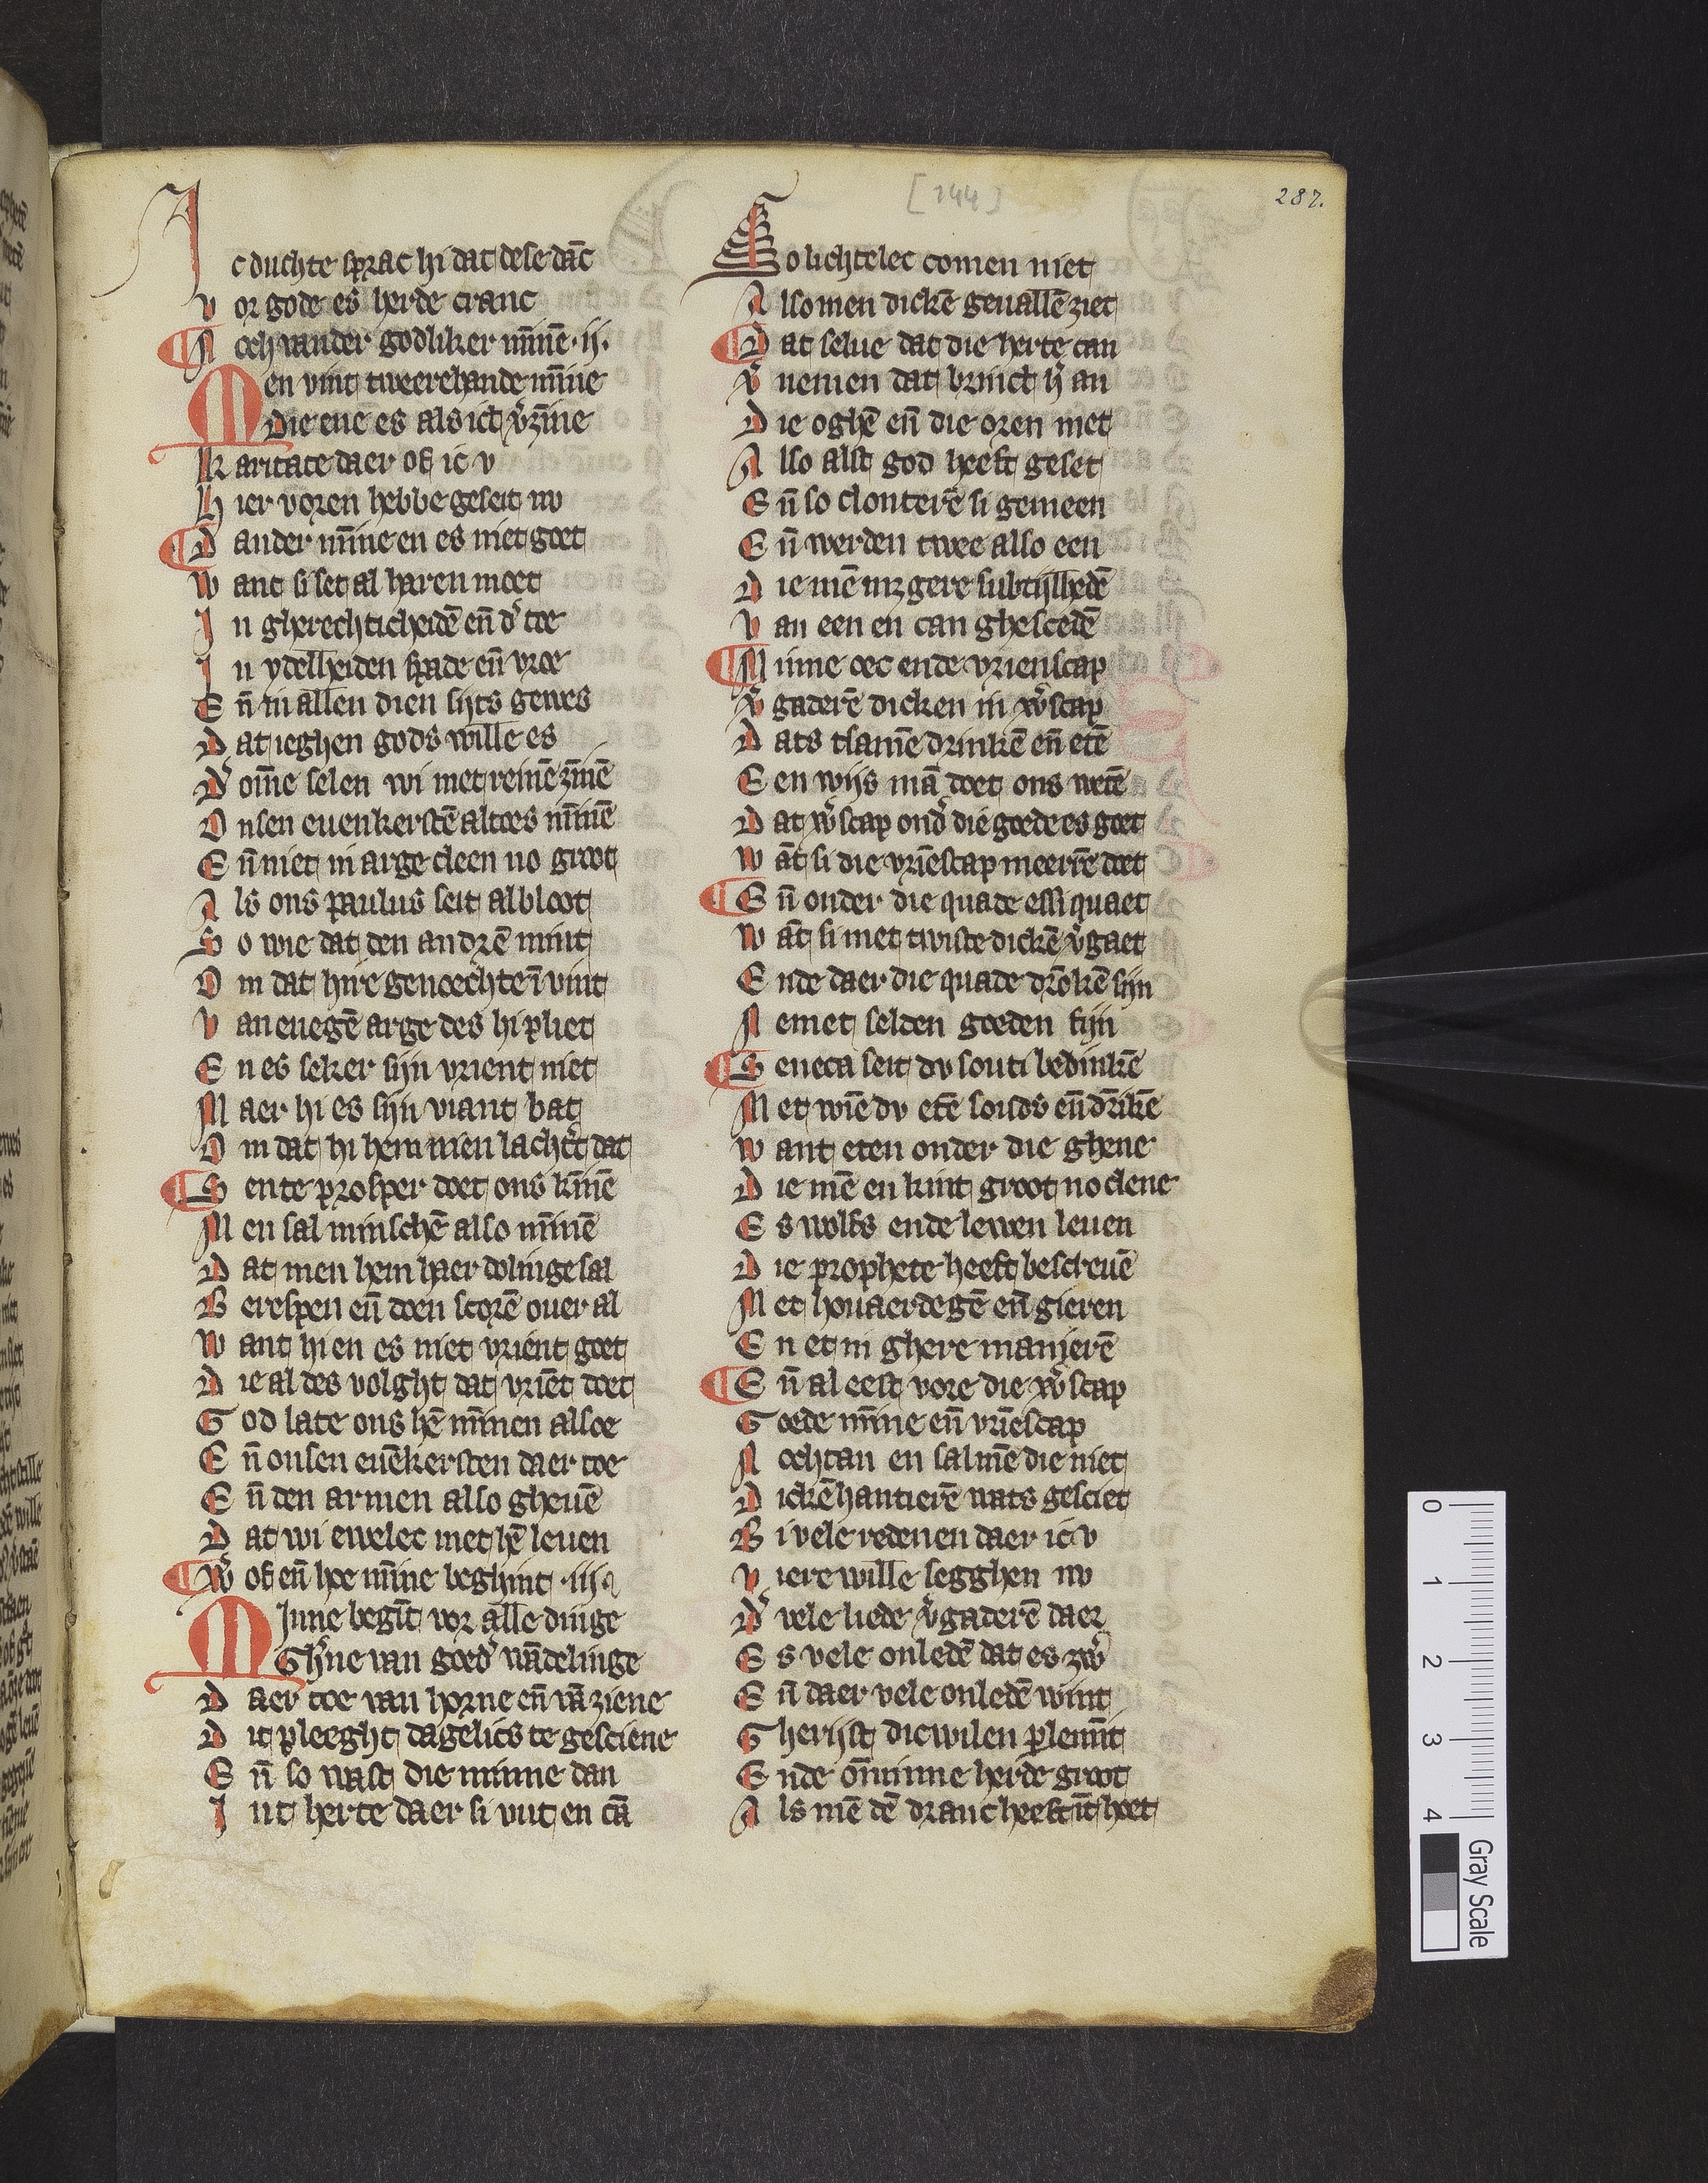 [244]
287.
Ic duchte sprac hi dat dese dāc
Vor gode es herde cranc
Noch vander godliker mīnē .ij.
Men vint tweerehande mīne
Die ene es als ict v̉zīne
Karitate daer of ic v
Hier voren hebbe geseit nv
Dander mīne en es niet goet
Want si set al haren moet
In gherechticheidē eñ d̉ toe
In ydelheiden spade eñ vroe
Eñ in allen dien sijts gewes
Dat ieghen gods wille es
D̉ om̄e selen wi met reinē zīnē
Onsen euenkerstē altoes mīnē
Eñ niet in arge cleen no groot
Als ons paulus seit al bloot
So wie dat den andrē mint
Om dat hire genoechte ī vint
Van enegē arge des hi pliet
En es seker sijn vrient niet
Maer hi es sijn viant bat
Om dat hi hem nien lacht̉t dat
Sente prosper doet ons kīnē
Men sal minschē also mīnē
Dat men hem haer dolinge sal
Berespen eñ doen scorē ouer al
Want hi en es niet vrient goet
Die al des volght dat vriēt doet
God late ons hē mīnen alsoe
Eñ onsen euēkersten daer toe
Eñ den armen also gheuē
Dat wi ewelec met hē leuen
W̉ of eñ hoe mīne beghint .iij.
Minne begīt vor alle dinge
Gh̉ne van goed̉ wādelinge
Daer toe van horne eñ vā ziene
Dit pleeght dagelics te gesciene
Eñ so wast die minne dan
Int herte daer si vut en cā
So lichtelec comen niet
Also men dickē geuallē ziet
Dat selue dat die herte can
V̉nemen dat brinct h̉ an
Die oghē eñ die oren met
Also alst god heeft geset
Eñ so clonterē si gemeen
Eñ werden twee also een
Die mē mz gere subtijlhedē
Van een en can ghescedē
Minne oec ende vrienscap
V̉gaderē dicken in w̉scap
Dats tsamē drinkē eñ etē
Een wijs mā doet ons wetē
Dat w̉scap ond̉ die goede es goet
Wāt si die vriēscap meerre doet
Eñ onder die quade essi quaet
Wāt si met twiste dickē v̉gaet
Ende daer die quade drōkē sijn
Nemet selden goeden fijn
Seneca seit dv souti bedinkē
Met wiē dv etē souds eñ drīkē
Want eten onder die ghene
Die mē en kint groot no clene
Es wolfs ende lewen leuen
Die prophete heeft bescreuē
Met houaerdegē eñ gieren
En et in ghere manierē
Eñ al eest vore die w̉scap
Goede mīne eñ vriēscap
Nochtan en salmē die niet
Dickē hantierē wats gesciet
Bi vele redenen daer ic v
Viere wille segghen nv
D̉ vele liede v̉gaderē daer
Es vele onledē dat es zw̉
Eñ daer vele onledē wint
Gherijst dicwilen plemīt
Ende ōminne herde groot
Als mē dē dranc heeft īt hoet
0 1 2 3 4
Gray Scale